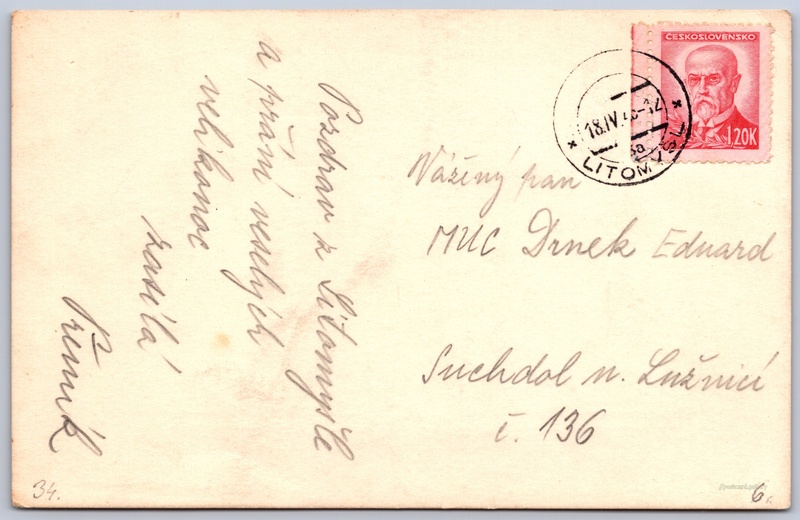 Pozdrav z Litomyšle
a přání veselých
velikonoc
zasílá
Přemík
ČESKOSLOVENSKO
1.20K
18.IV.
LITOMYŠL
Vážený pan
MUC Drnek Eduard
Suchdol n. Lužnicí
č. 136
34.
6.